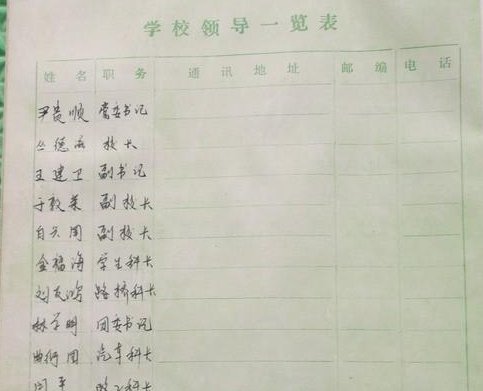 学校领导一览表
姓名 职务 通讯地址 邮编 电话
尹贵顺 党委书记
丛德 校长
王建卫 副书记
于敦荣 副校长
自天周 副校长
金福海 学生科长
刘友鸿 路桥科长
林学明 团委书记
曲衍国 汽车科长
科长